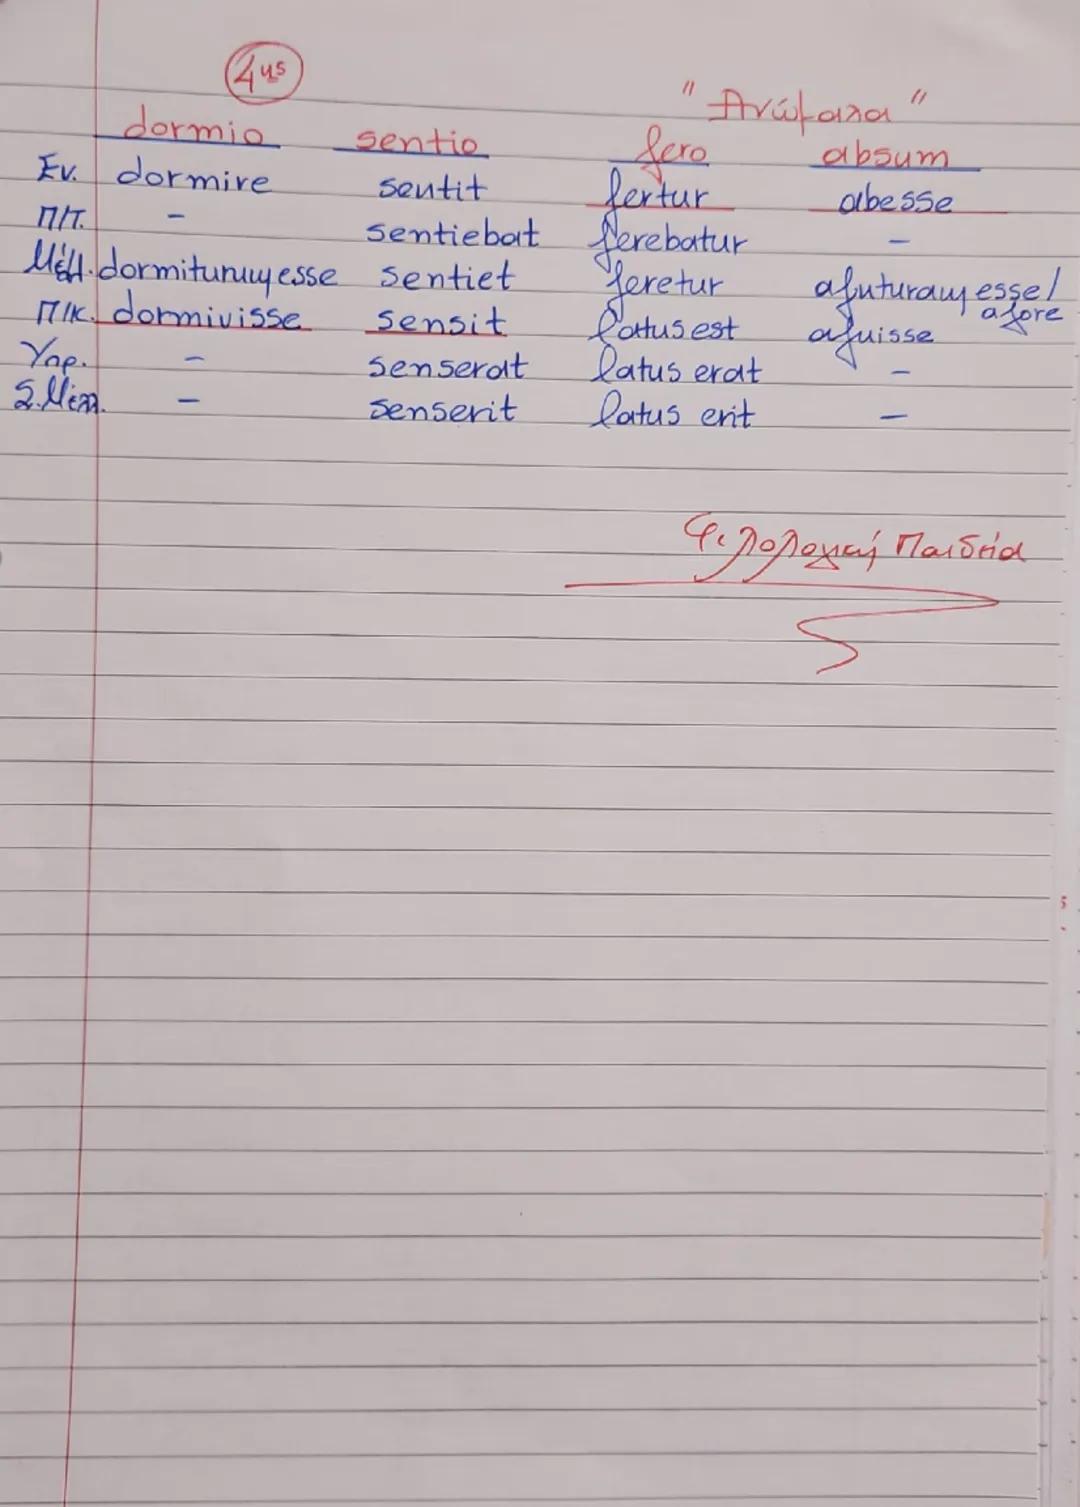 4ης
"Ανώμαλα"
dormio sentio fero absum
Εν. dormire sentit fertur abesse
Π/Τ. - sentiebat ferebatur -
Μέλλ. dormiturum esse sentiet feretur afuturam esse/
afore
Π/Κ. dormivisse sensit latus est afuisse
Υπρ. - senserat latus erat -
Σ.Μελλ. - senserit latus erit -
Φιλολογική Παιδεία